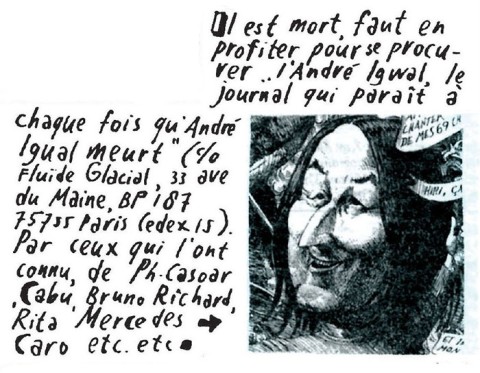 Il est mort, faut en
profiter pour se procu-
rer .. l'André Igwal, le
journal qui paraît à
chaque fois qu'André
Igual meurt" (c/o
Fluide Glacial, 33 ave
du Maine, BP 187
75755 Paris Cedex 15).
Par ceux qui l'ont
connu, de Ph. Casoar
, Cabu, Bruno Richard,
Rita Mercedes →
Caro etc. etc.
CHANTER
DE MES 69 CH